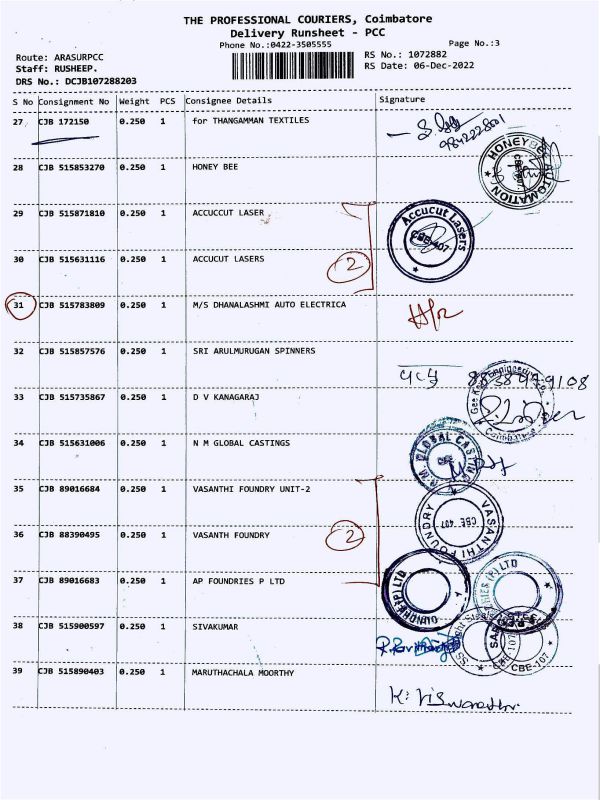 THE PROFESSIONAL COURIERS, Coimbatore
Delivery Runsheet - PCC
Phone No.:0422-3505555
Page No.:3
Route: ARASURPCC
RS No.: 1072882
Staff: RUSHEEP.
RS Date: 06-Dec-2022
DRS No.: DCJB107288203
S No Consignment No Weight PCS Consignee Details Signature
27 CJB 172150 0.250 1 for THANGAMMAN TEXTILES
28 CJB 515853270 0.250 1 HONEY BEE
HONEYBEE AUTOMATION
29 CJB 515871810 0.250 1 ACCUCCUT LASER
Accucut Lasers
CBE-407
30 CJB 515631116 0.250 1 ACCUCUT LASERS
2
31 CJB 515783809 0.250 1 M/S DHANALASHMI AUTO ELECTRICA
32 CJB 515857576 0.250 1 SRI ARULMURUGAN SPINNERS
33 CJB 515735867 0.250 1 D V KANAGARAJ
34 CJB 515631006 0.250 1 N M GLOBAL CASTINGS
GLOBAL CASTING
35 CJB 89016684 0.250 1 VASANTHI FOUNDRY UNIT-2
VASANTHI FOUNDRY
CBE 407
36 CJB 88390495 0.250 1 VASANTH FOUNDRY
2
37 CJB 89016683 0.250 1 AP FOUNDRIES P LTD
(P) LTD
38 CJB 515900597 0.250 1 SIVAKUMAR
CBE-107
39 CJB 515890403 0.250 1 MARUTHACHALA MOORTHY